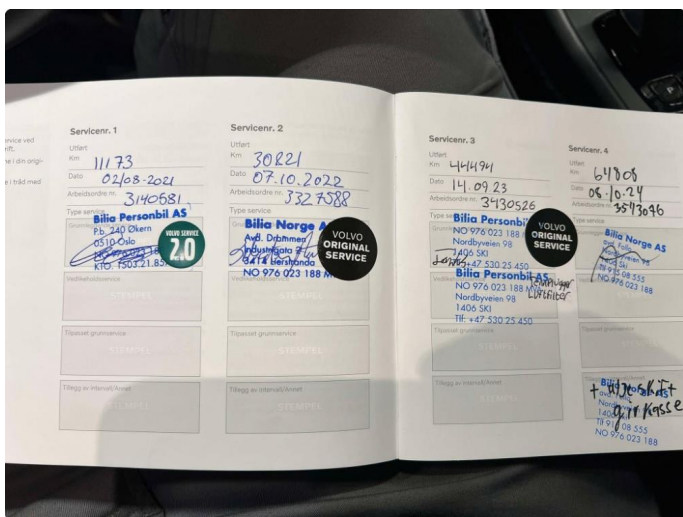 rvice ved
rift.
ne i din origi-
e i tråd med
Servicenr. 1
Utført
Km 11173
Dato 02/08-2021
Arbeidsordre nr. 3140581
Type service
Bilia Personbil AS
P.b. 240 Økern
0510 Oslo
KTO. 1503.21.85
VOLVO SERVICE
2.0
Vedlikeholdsservice
STEMPEL
Tilpasset grunnservice
STEMPEL
Tillegg av intervall/Annet
STEMPEL
Servicenr. 2
Utført
Km 30821
Dato 07.10.2022
Arbeidsordre nr. 3327588
Type service
Bilia Norge AS
Avd. Drammen
Industrigata 7
3414 Lierstranda
NO 976 023 188 M
VOLVO
ORIGINAL
SERVICE
Vedlikeholdsservice
STEMPEL
Tilpasset grunnservice
STEMPEL
Tillegg av intervall/Annet
STEMPEL
Servicenr. 3
Utført
Km 44494
Dato 14.09.23
Arbeidsordre nr. 3430526
Type se
Bilia Personbi
NO 976 023 188
Nordbyveien 98
1406 SKI
+47 530 25 450
VOLVO
ORIGINAL
SERVICE
Bilia Personbil AS
NO 976 023 188 M
Nordbyveien 98
1406 SKI
Tlf: +47 530 25 450
Luftfilter
Tilpasset grunnservice
STEMPEL
Tillegg av intervall/Annet
STEMPEL
Servicenr. 4
Utført
Km 64808
Dato 08.10.24
Arbeidsordre nr. 3543046
Type service
Bilia Norge AS
avd. Follo
Nordbyveien 98
1406 Ski
Tlf 915 08 555
NO 976 023 188
Vedlikeholdsservice
STEMPEL
Tilpasset grunnservice
STEMPEL
Tillegg av intervall/Annet
Bilia Norge AS
avd. Follo
+ oljeskift
girkasse
1406 Ski
Tlf 915 08 555
NO 976 023 188